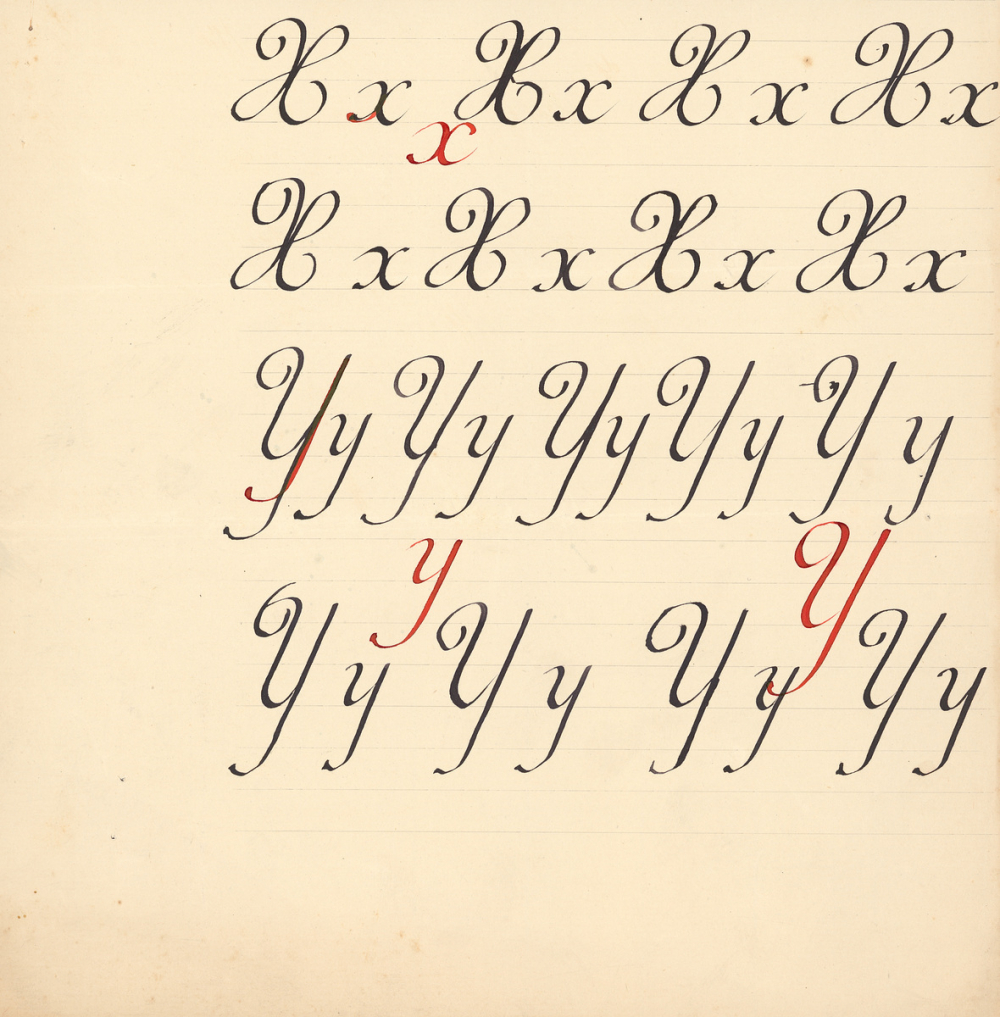 X x X x X x X x
x
X x X x X x X x
Y y Y y Y y Y y Y y
y Y
Y y Y y Y y Y y